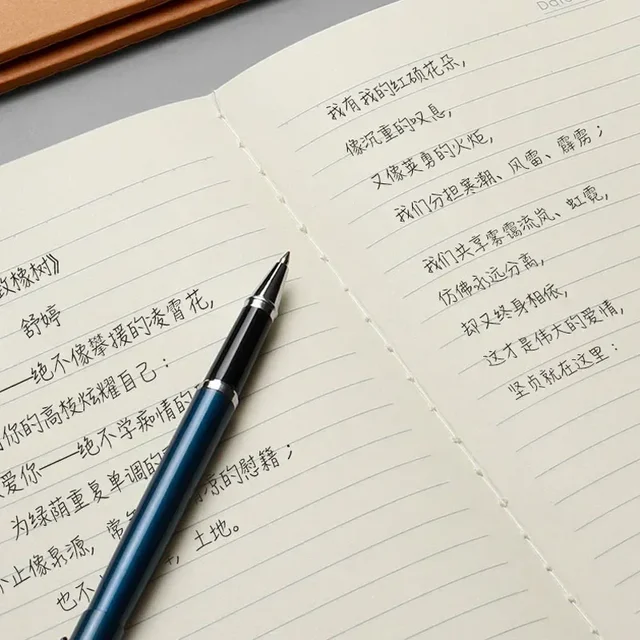 致橡树》
舒婷
——绝不像攀援的凌霄花,
你的高枝炫耀自己:
爱你——绝不学痴情的
为绿荫重复单调的
不止像泉源,常 凉的慰籍;
也不 土地。
Date
我有我的红硕花朵,
像沉重的叹息,
又像英勇的火炬,
我们分担寒潮、风雷、霹雳;
我们共享雾霭流岚、虹霓,
仿佛永远分离,
却又终身相依,
这才是伟大的爱情,
坚贞就在这里: